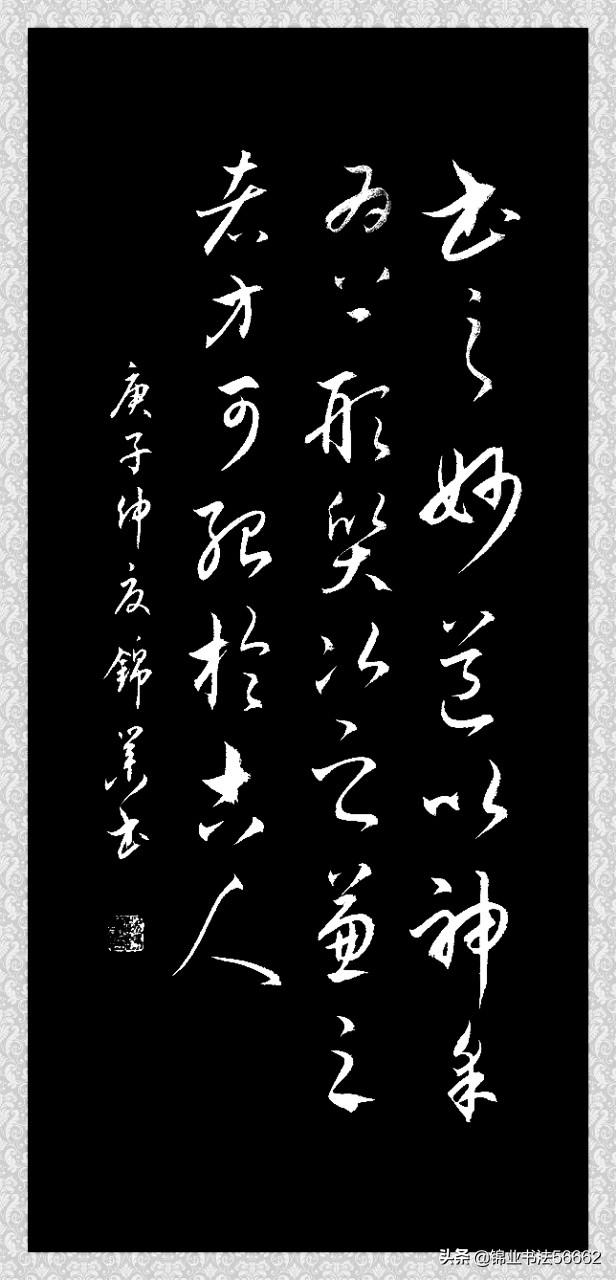 书之妙道以神采
为上形质次之兼之
者方可绍於古人
庚子仲夏錦業书
头条 @锦业书法56662